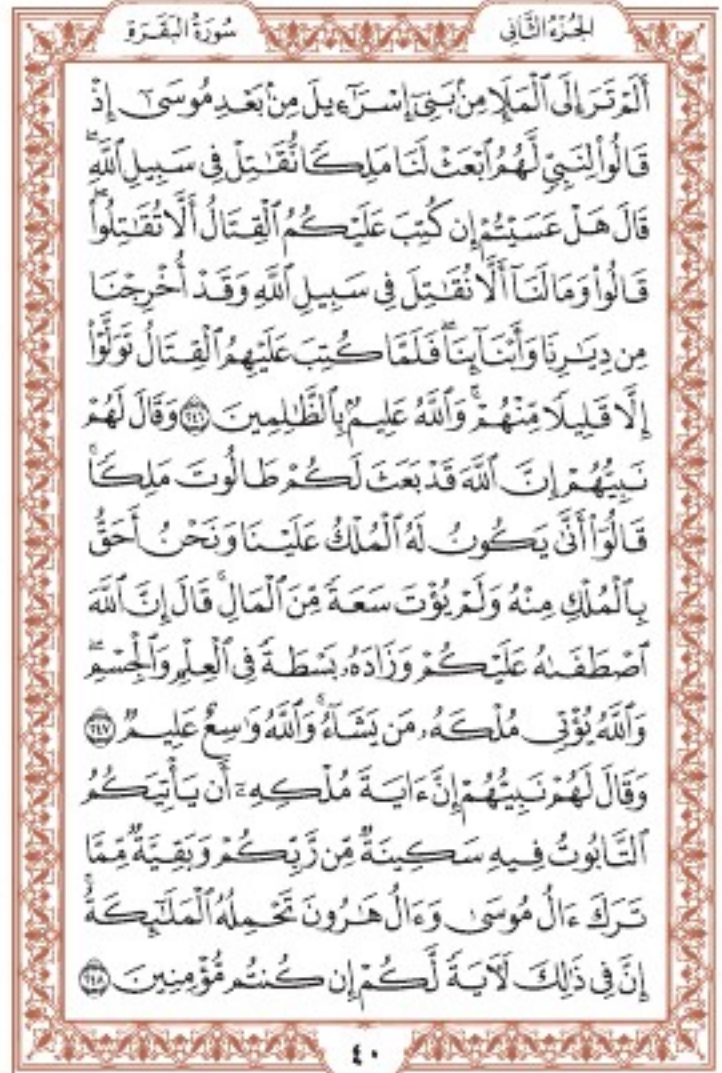 الجُزْءُ الثَّانِي
سُورَةُ البَقَرَةِ
أَلَمْ تَرَ إِلَى ٱلْمَلَإِ مِنۢ بَنِىٓ إِسْرَٰٓءِيلَ مِنۢ بَعْدِ مُوسَىٰٓ إِذْ
قَالُوا۟ لِنَبِىٍّ لَّهُمُ ٱبْعَثْ لَنَا مَلِكًا نُّقَـٰتِلْ فِى سَبِيلِ ٱللَّهِ ۖ
قَالَ هَلْ عَسَيْتُمْ إِن كُتِبَ عَلَيْكُمُ ٱلْقِتَالُ أَلَّا تُقَـٰتِلُوا۟ ۖ
قَالُوا۟ وَمَا لَنَآ أَلَّا نُقَـٰتِلَ فِى سَبِيلِ ٱللَّهِ وَقَدْ أُخْرِجْنَا
مِن دِيَـٰرِنَا وَأَبْنَآئِنَا ۖ فَلَمَّا كُتِبَ عَلَيْهِمُ ٱلْقِتَالُ تَوَلَّوْا۟
إِلَّا قَلِيلًا مِّنْهُمْ ۗ وَٱللَّهُ عَلِيمٌۢ بِٱلظَّـٰلِمِينَ ٢٤٦ وَقَالَ لَهُمْ
نَبِيُّهُمْ إِنَّ ٱللَّهَ قَدْ بَعَثَ لَكُمْ طَالُوتَ مَلِكًا ۚ
قَالُوٓا۟ أَنَّىٰ يَكُونُ لَهُ ٱلْمُلْكُ عَلَيْنَا وَنَحْنُ أَحَقُّ
بِٱلْمُلْكِ مِنْهُ وَلَمْ يُؤْتَ سَعَةً مِّنَ ٱلْمَالِ ۚ قَالَ إِنَّ ٱللَّهَ
ٱصْطَفَىٰهُ عَلَيْكُمْ وَزَادَهُۥ بَسْطَةً فِى ٱلْعِلْمِ وَٱلْجِسْمِ ۖ
وَٱللَّهُ يُؤْتِى مُلْكَهُۥ مَن يَشَآءُ ۚ وَٱللَّهُ وَٰسِعٌ عَلِيمٌ ٢٤٧
وَقَالَ لَهُمْ نَبِيُّهُمْ إِنَّ ءَايَةَ مُلْكِهِۦٓ أَن يَأْتِيَكُمُ
ٱلتَّابُوتُ فِيهِ سَكِينَةٌ مِّن رَّبِّكُمْ وَبَقِيَّةٌ مِّمَّا
تَرَكَ ءَالُ مُوسَىٰ وَءَالُ هَـٰرُونَ تَحْمِلُهُ ٱلْمَلَـٰٓئِكَةُ ۚ
إِنَّ فِى ذَٰلِكَ لَـَٔايَةً لَّكُمْ إِن كُنتُم مُّؤْمِنِينَ ٢٤٨
٤٠